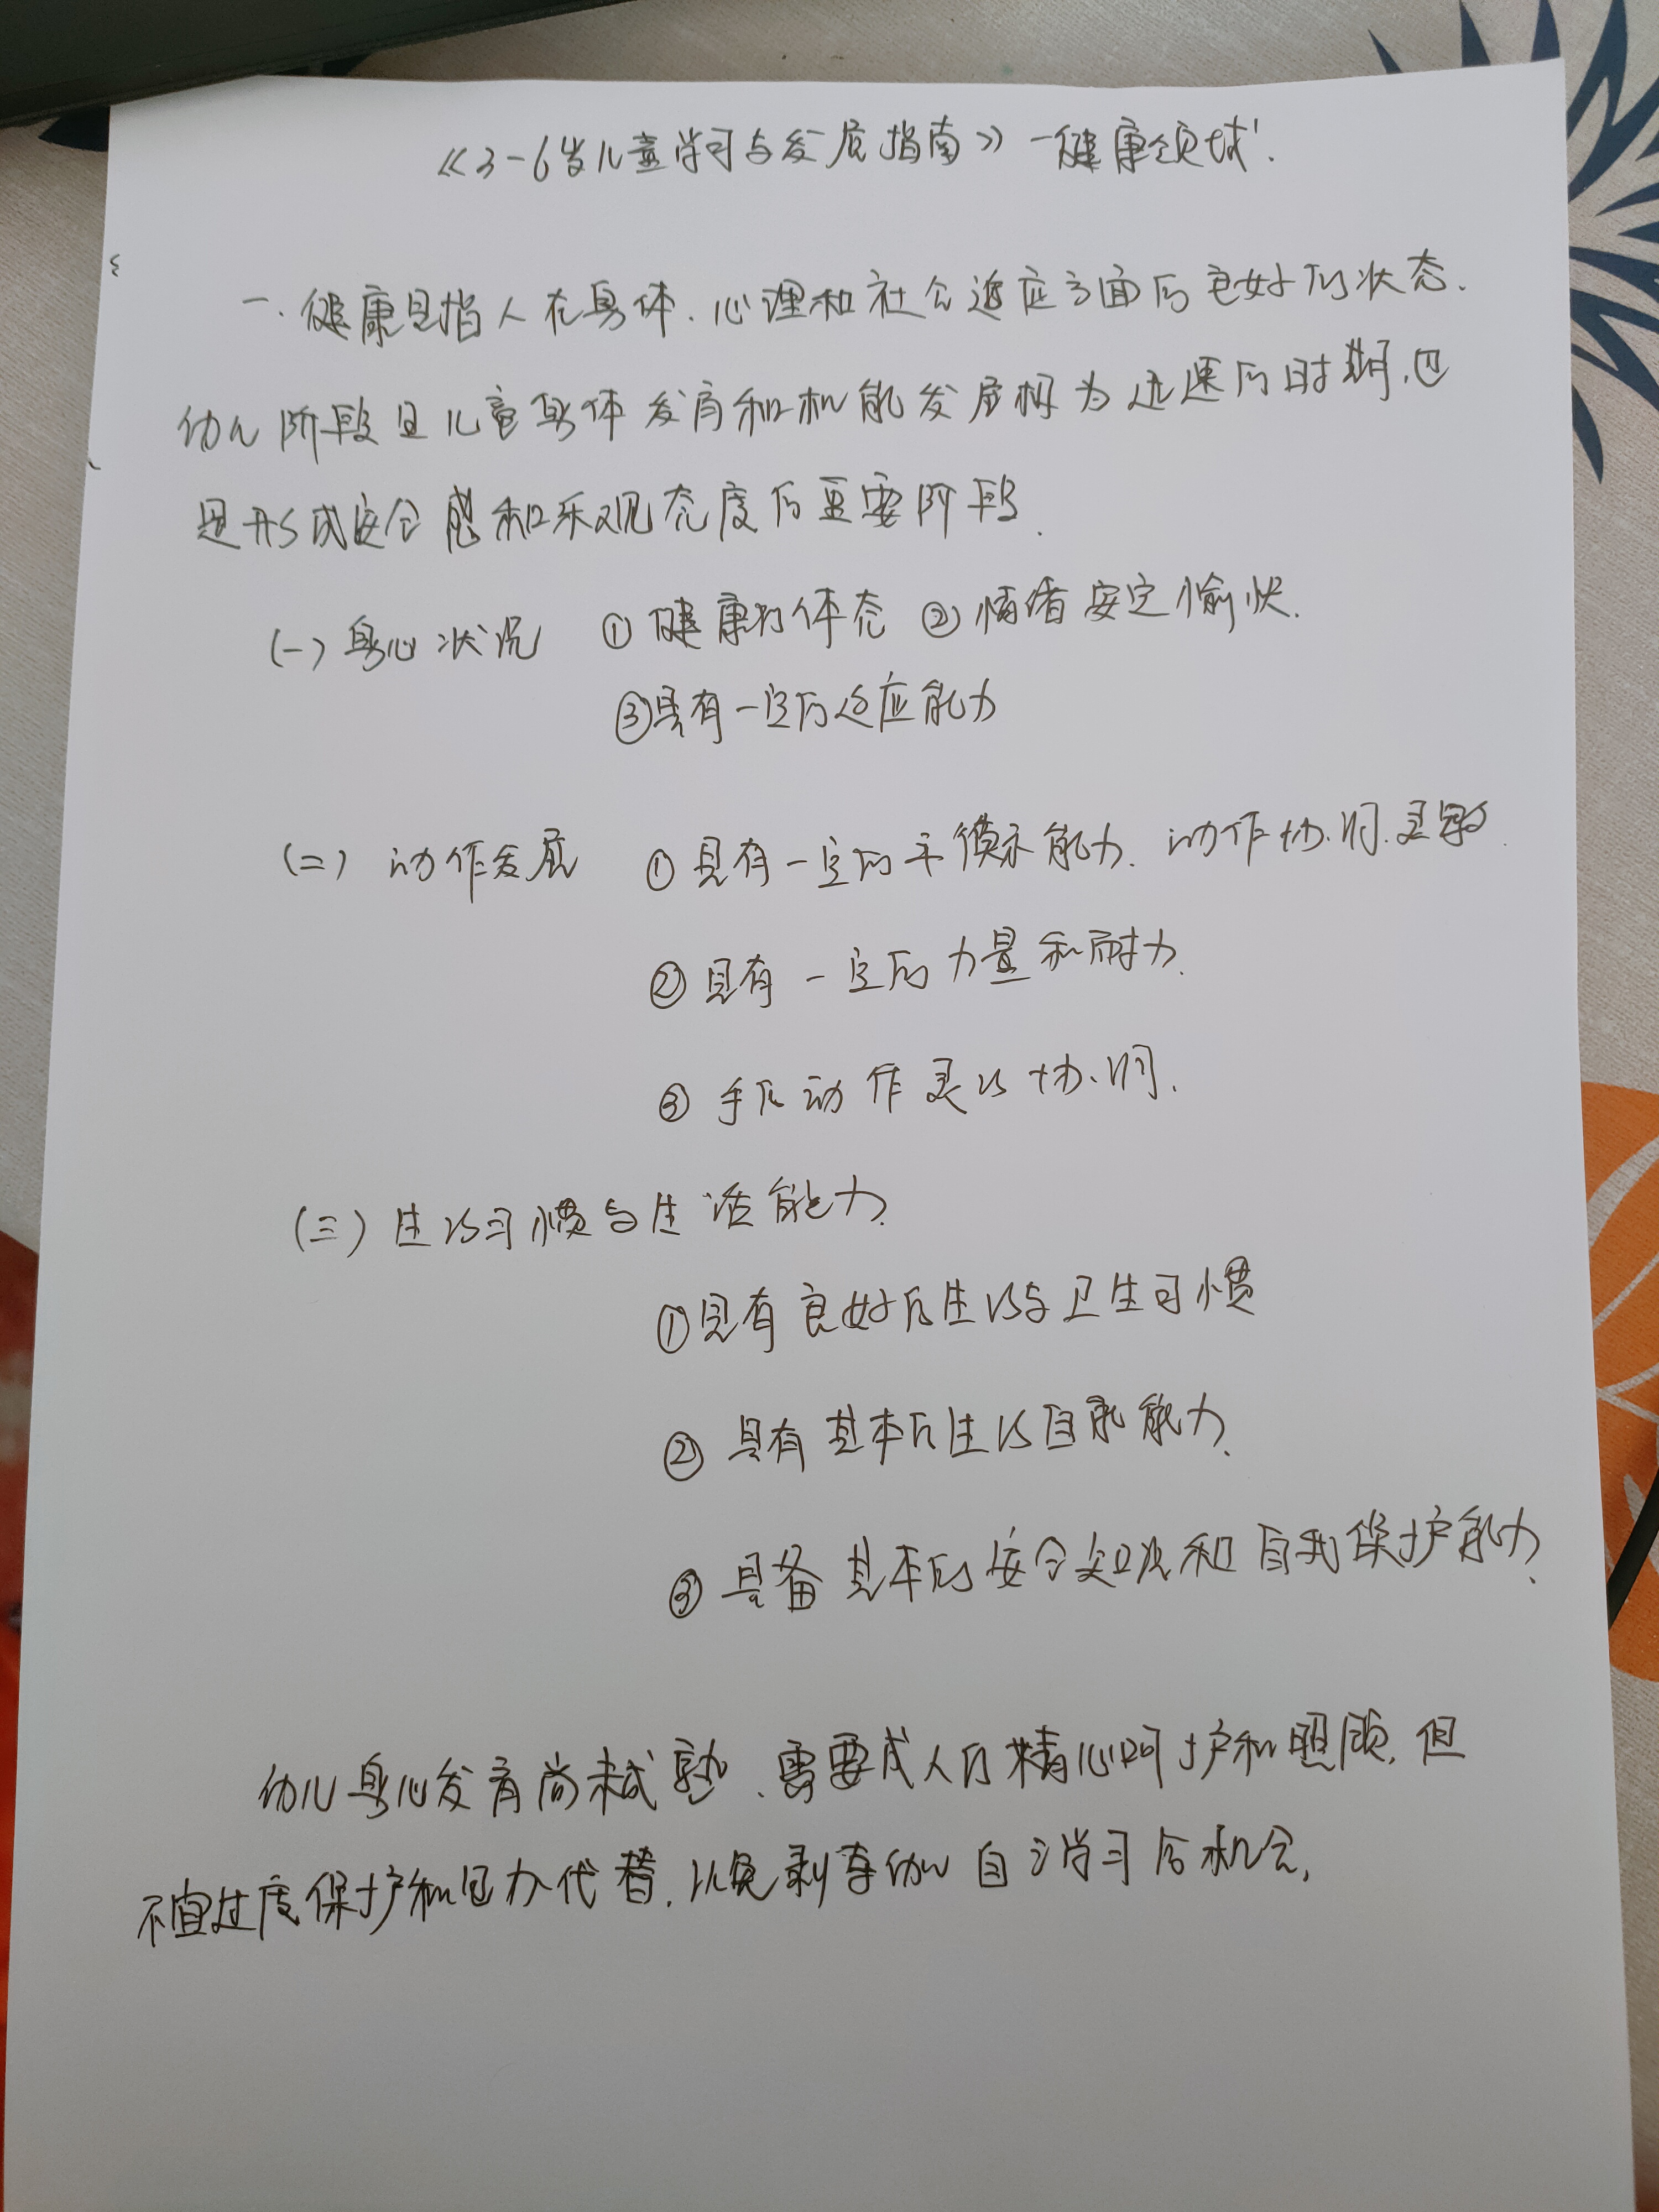 《3-6岁儿童学习与发展指南》-健康领域.
一.健康是指人在身体.心理和社会适应方面的良好的状态.
幼儿阶段是儿童身体发育和机能发展极为迅速的时期,也
是形成安全感和乐观态度的重要阶段.
(一)身心状况 ①健康的体态 ②情绪安定愉快.
③具有一定的适应能力
(二)动作发展 ①具有一定的平衡能力.动作协调.灵敏.
②具有一定的力量和耐力.
③手的动作灵活协调.
(三)生活习惯与生活能力.
①具有良好的生活与卫生习惯
②具有基本的生活自理能力.
③具备基本的安全知识和自我保护能力.
幼儿身心发育尚未成熟.需要成人的精心呵护和照顾.但
不宜过度保护和包办代替.以免剥夺幼儿自主学习的机会.